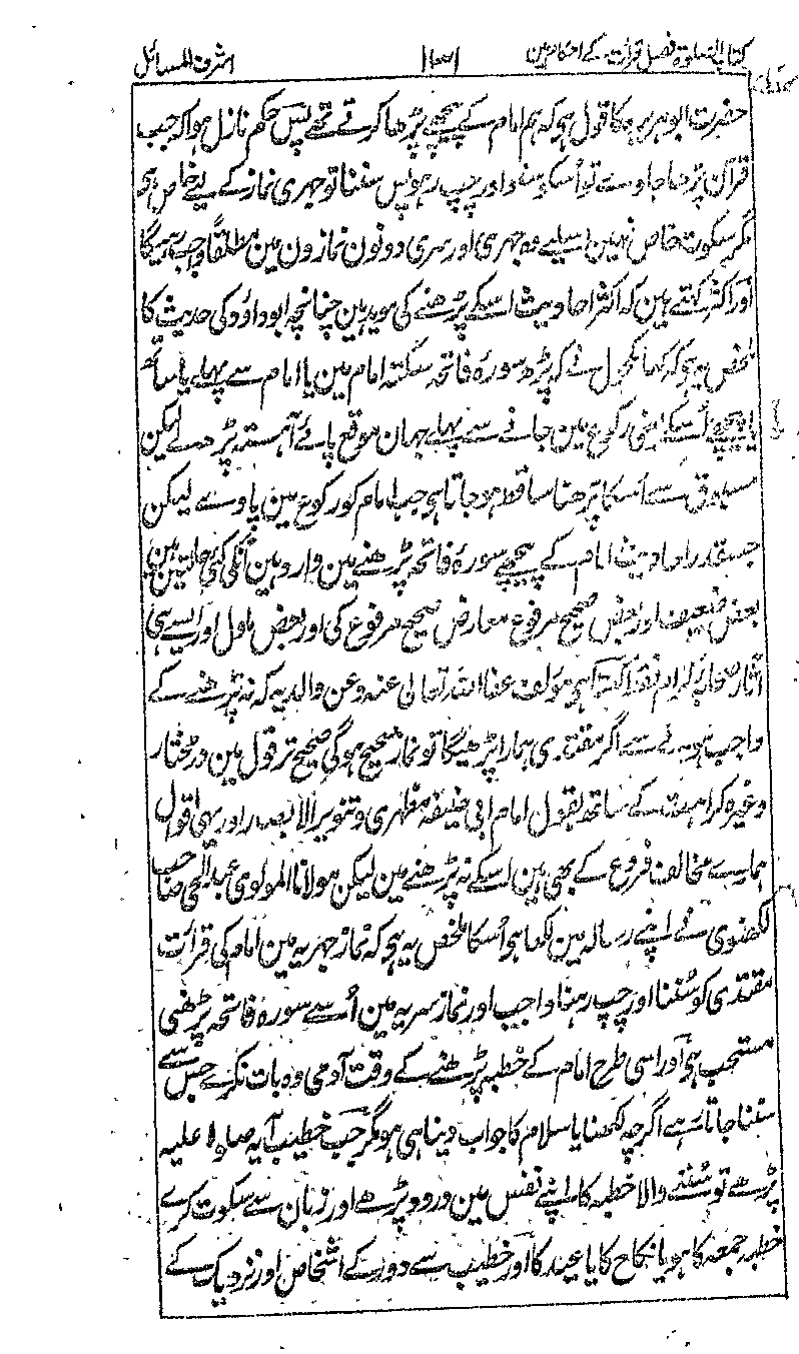 کتاب الصلوۃ فصل قرات کے احکام مین
۱۳۱
اشرف المسائل
حضرت ابو ہریرہ کا قول ہو کہ ہم امام کے پیچھے پڑھا کرتے تھے پس حکم نازل ہوا کہ جب
قرآن پڑھا جاوے تو اُسکو سنو اور چپ رہو پس سننا تو جہری نماز کے لیے خاص ہی
مگر سکوت خاص نہین اسلیے وہ جہری اور سری دونون نمازون مین مطلقًا واجب رہیگا
اور اکثر کہتے ہین کہ اکثر احادیث اسکے پڑھنے کی موید ہین چنانچہ ابو داؤد کی حدیث کا
ملخص یہ ہو کہ کہا مکحول نے کہ پڑھ سورۂ فاتحہ سکتۂ امام مین یا امام سے پہلے یا ساتھ
یا پیچھے اُسکے یعنی رکوع مین جانے سے پہلے جہان موقع پائے آہستہ پڑھ لے لیکن
مسبوق سے اُسکا پڑھنا ساقط ہو جاتا ہو جب امام کو رکوع مین پاوے لیکن
جسقدر احادیث امام کے پیچھے سورۂ فاتحہ پڑھنے مین وارد ہین اُنکی کئی حالتین ہین
بعض ضعیف اور بعض صحیح مرفوع معارض صحیح مرفوع کی اور بعض ماول اور ایسے ہی
آثار صحابہ کرام فقط کہتا ہو مولف عفا اللہ تعالی عنہ وعن والدیہ کہ نہ پڑھنے کے
واجب ہونے سے اگر مقتدی ہمارا پڑھیگا تو نماز صحیح ہوگی صحیح تر قول مین در مختار
وغیرہ کراہت کے ساتھ بقول امام ابی حنیفہ مظہری و تنویر الابصار اور یہی اقوال
ہمارے مخالف فروع کے بھی ہین اسکے نہ پڑھنے مین لیکن مولانا المولوی عبد الحی صاحب
لکھنوی نے اپنے رسالہ مین لکھا ہو اُسکا ملخص یہ ہو کہ نماز جہریہ مین امام کی قرائت
مقتدی کو سُننا اور چپ رہنا واجب اور نماز سریہ مین اُسے سورۂ فاتحہ پڑھنی
مستحب ہو اور اسی طرح امام کے خطبہ پڑھنے کے وقت آدمی وہ بات نکرے جس سے
سننا جاتا رہے اگرچہ لکھنا یا سلام کا جواب دینا ہی ہو مگر جب خطیب آیہ صلوا علیہ
پڑھے تو سُننے والا خطبہ کا اپنے نفس مین درود پڑھے اور زبان سے سکوت کرے
خطبہ جمعہ کا ہو یا نکاح کا یا عید کا اور خطیب سے دور کے اشخاص اور نزدیک کے